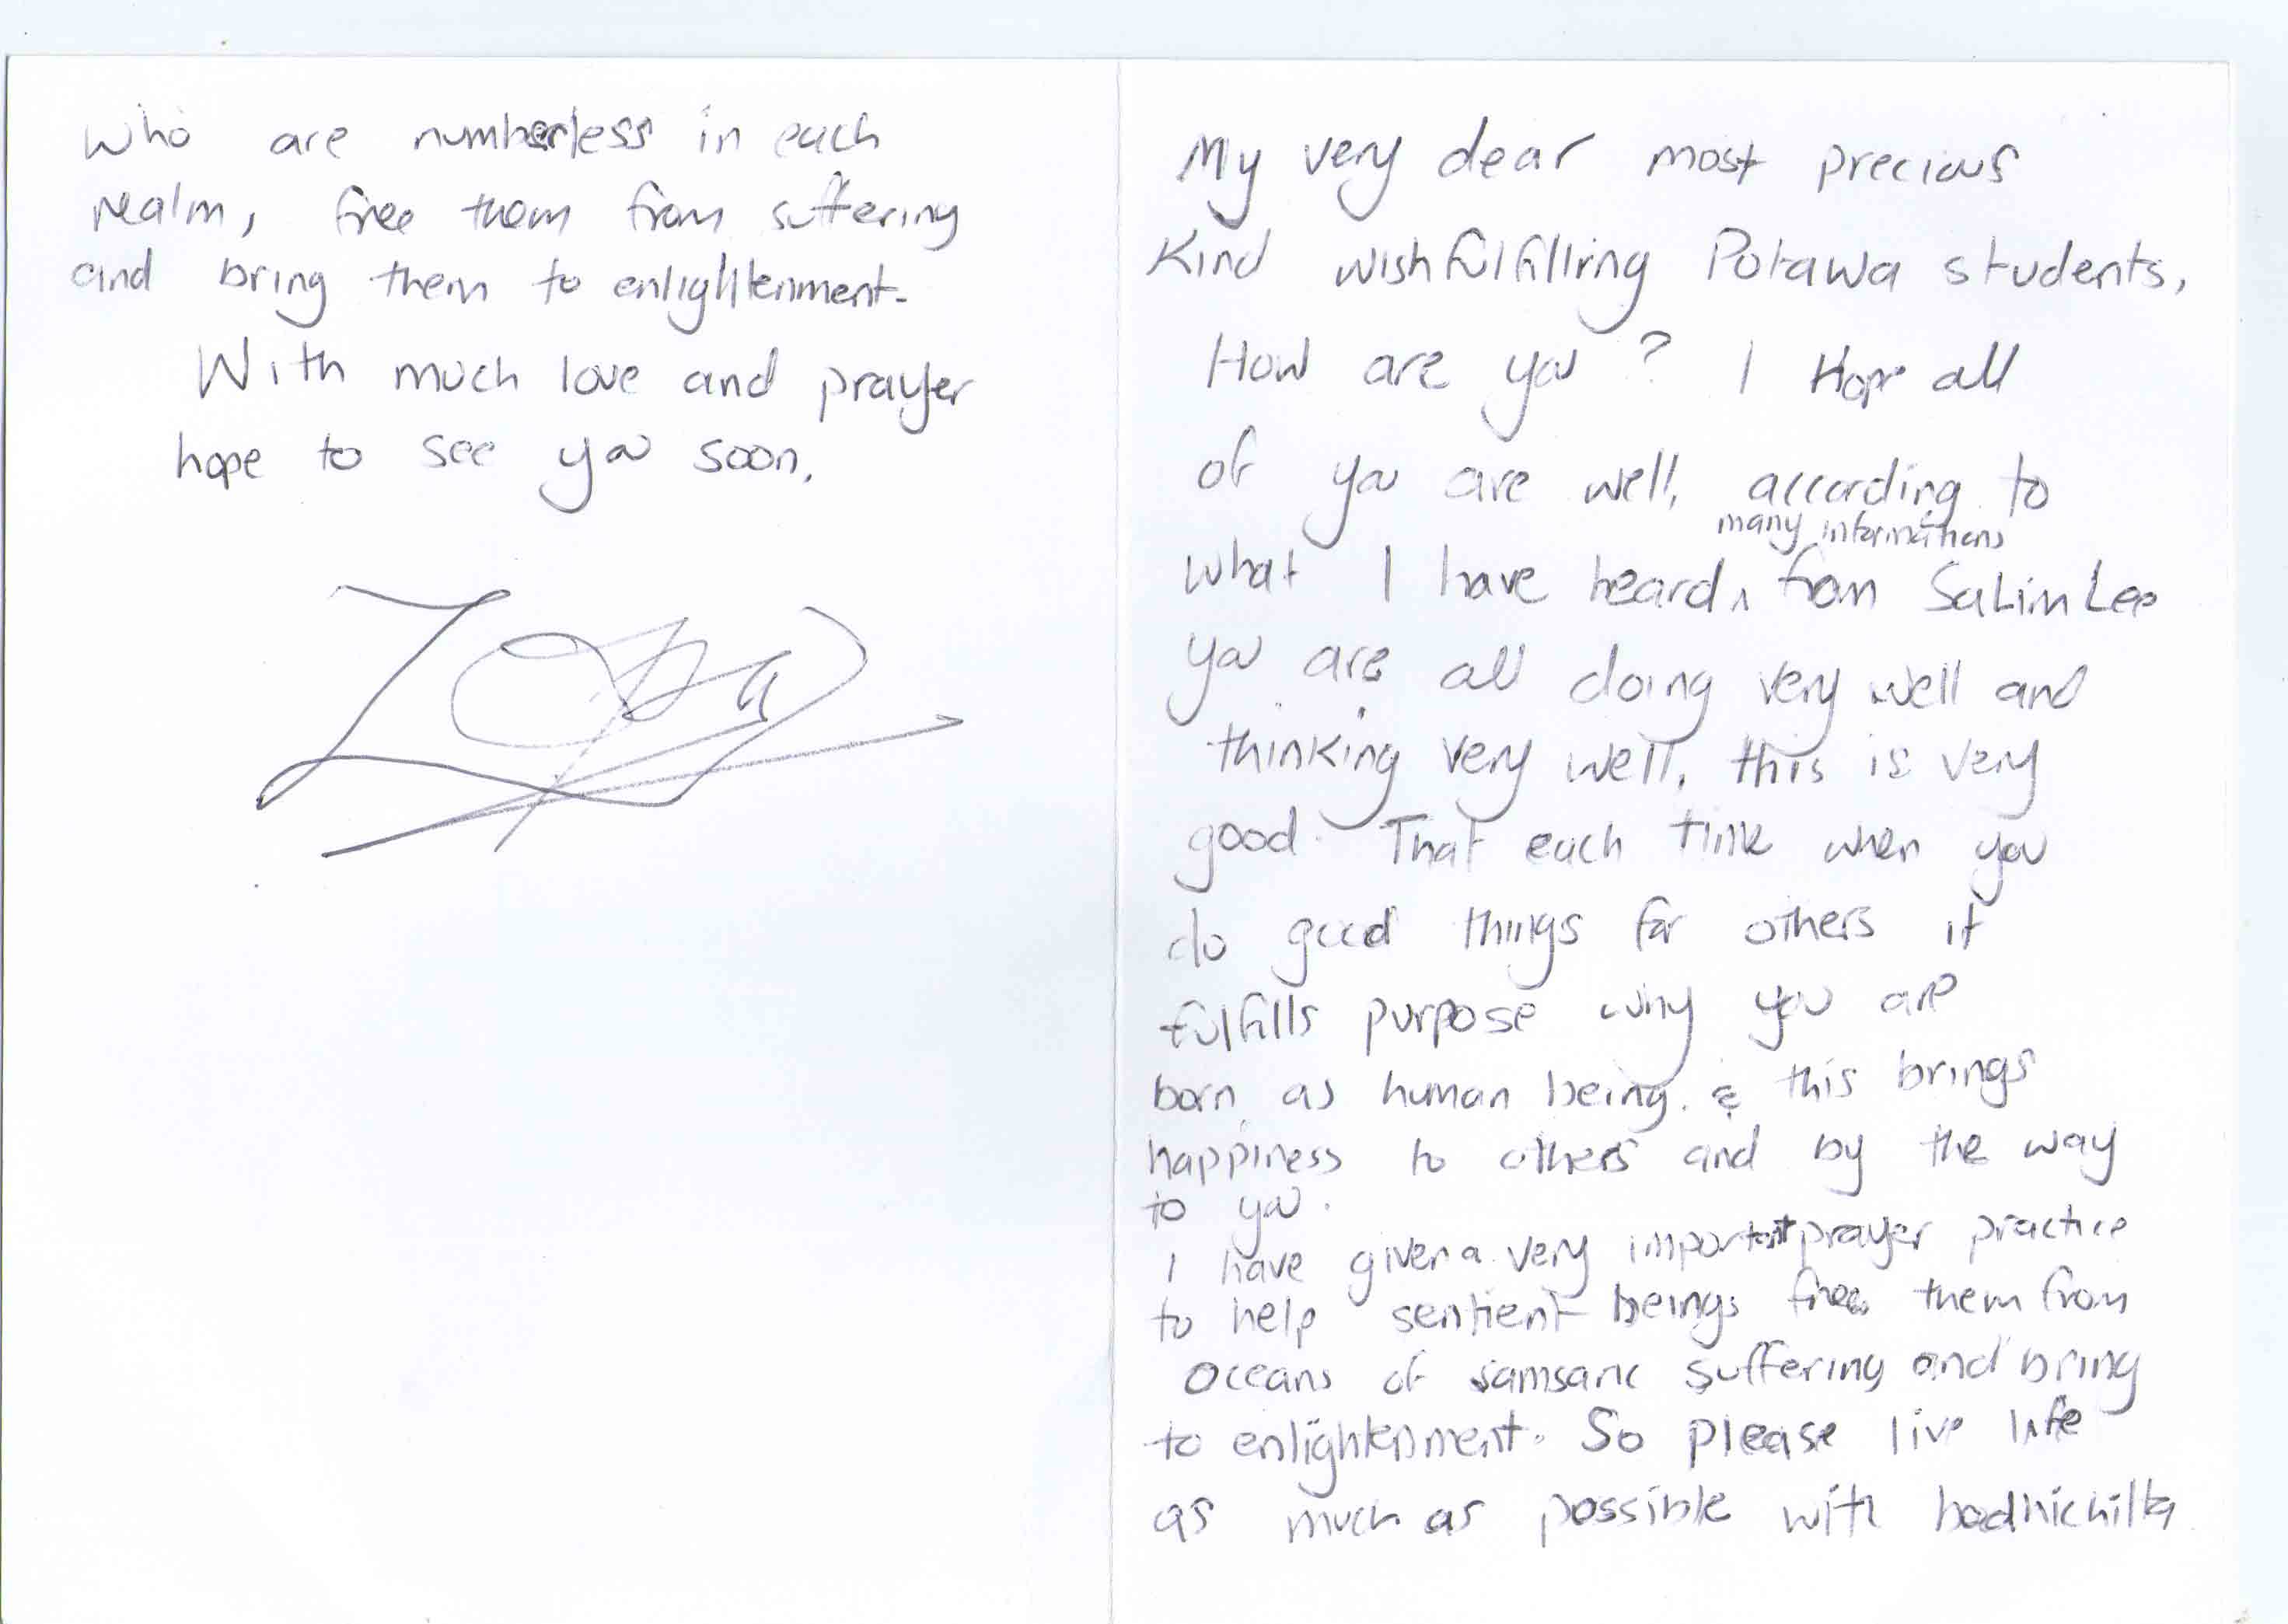 My very dear most precious
Kind wishfulfillring Potawa students,
How are you? I Hope all
of you are well, according to
many informations
what I have heard ^ from Salim Lee
you are all doing very well and
thinking very well, this is very
good. That each time when you
do good things for others it
fulfills purpose why you are
born as human being. & this brings
happiness to others and by the way
to you.
I have given a very important prayer practice
to help sentient beings free them from
oceans of samsaric suffering and bring
to enlightenment. So please live life
as much as possible with bodhichitta
who are numberless in each
realm, free them from suffering
and bring them to enlightenment.
With much love and prayer
hope to see you soon.